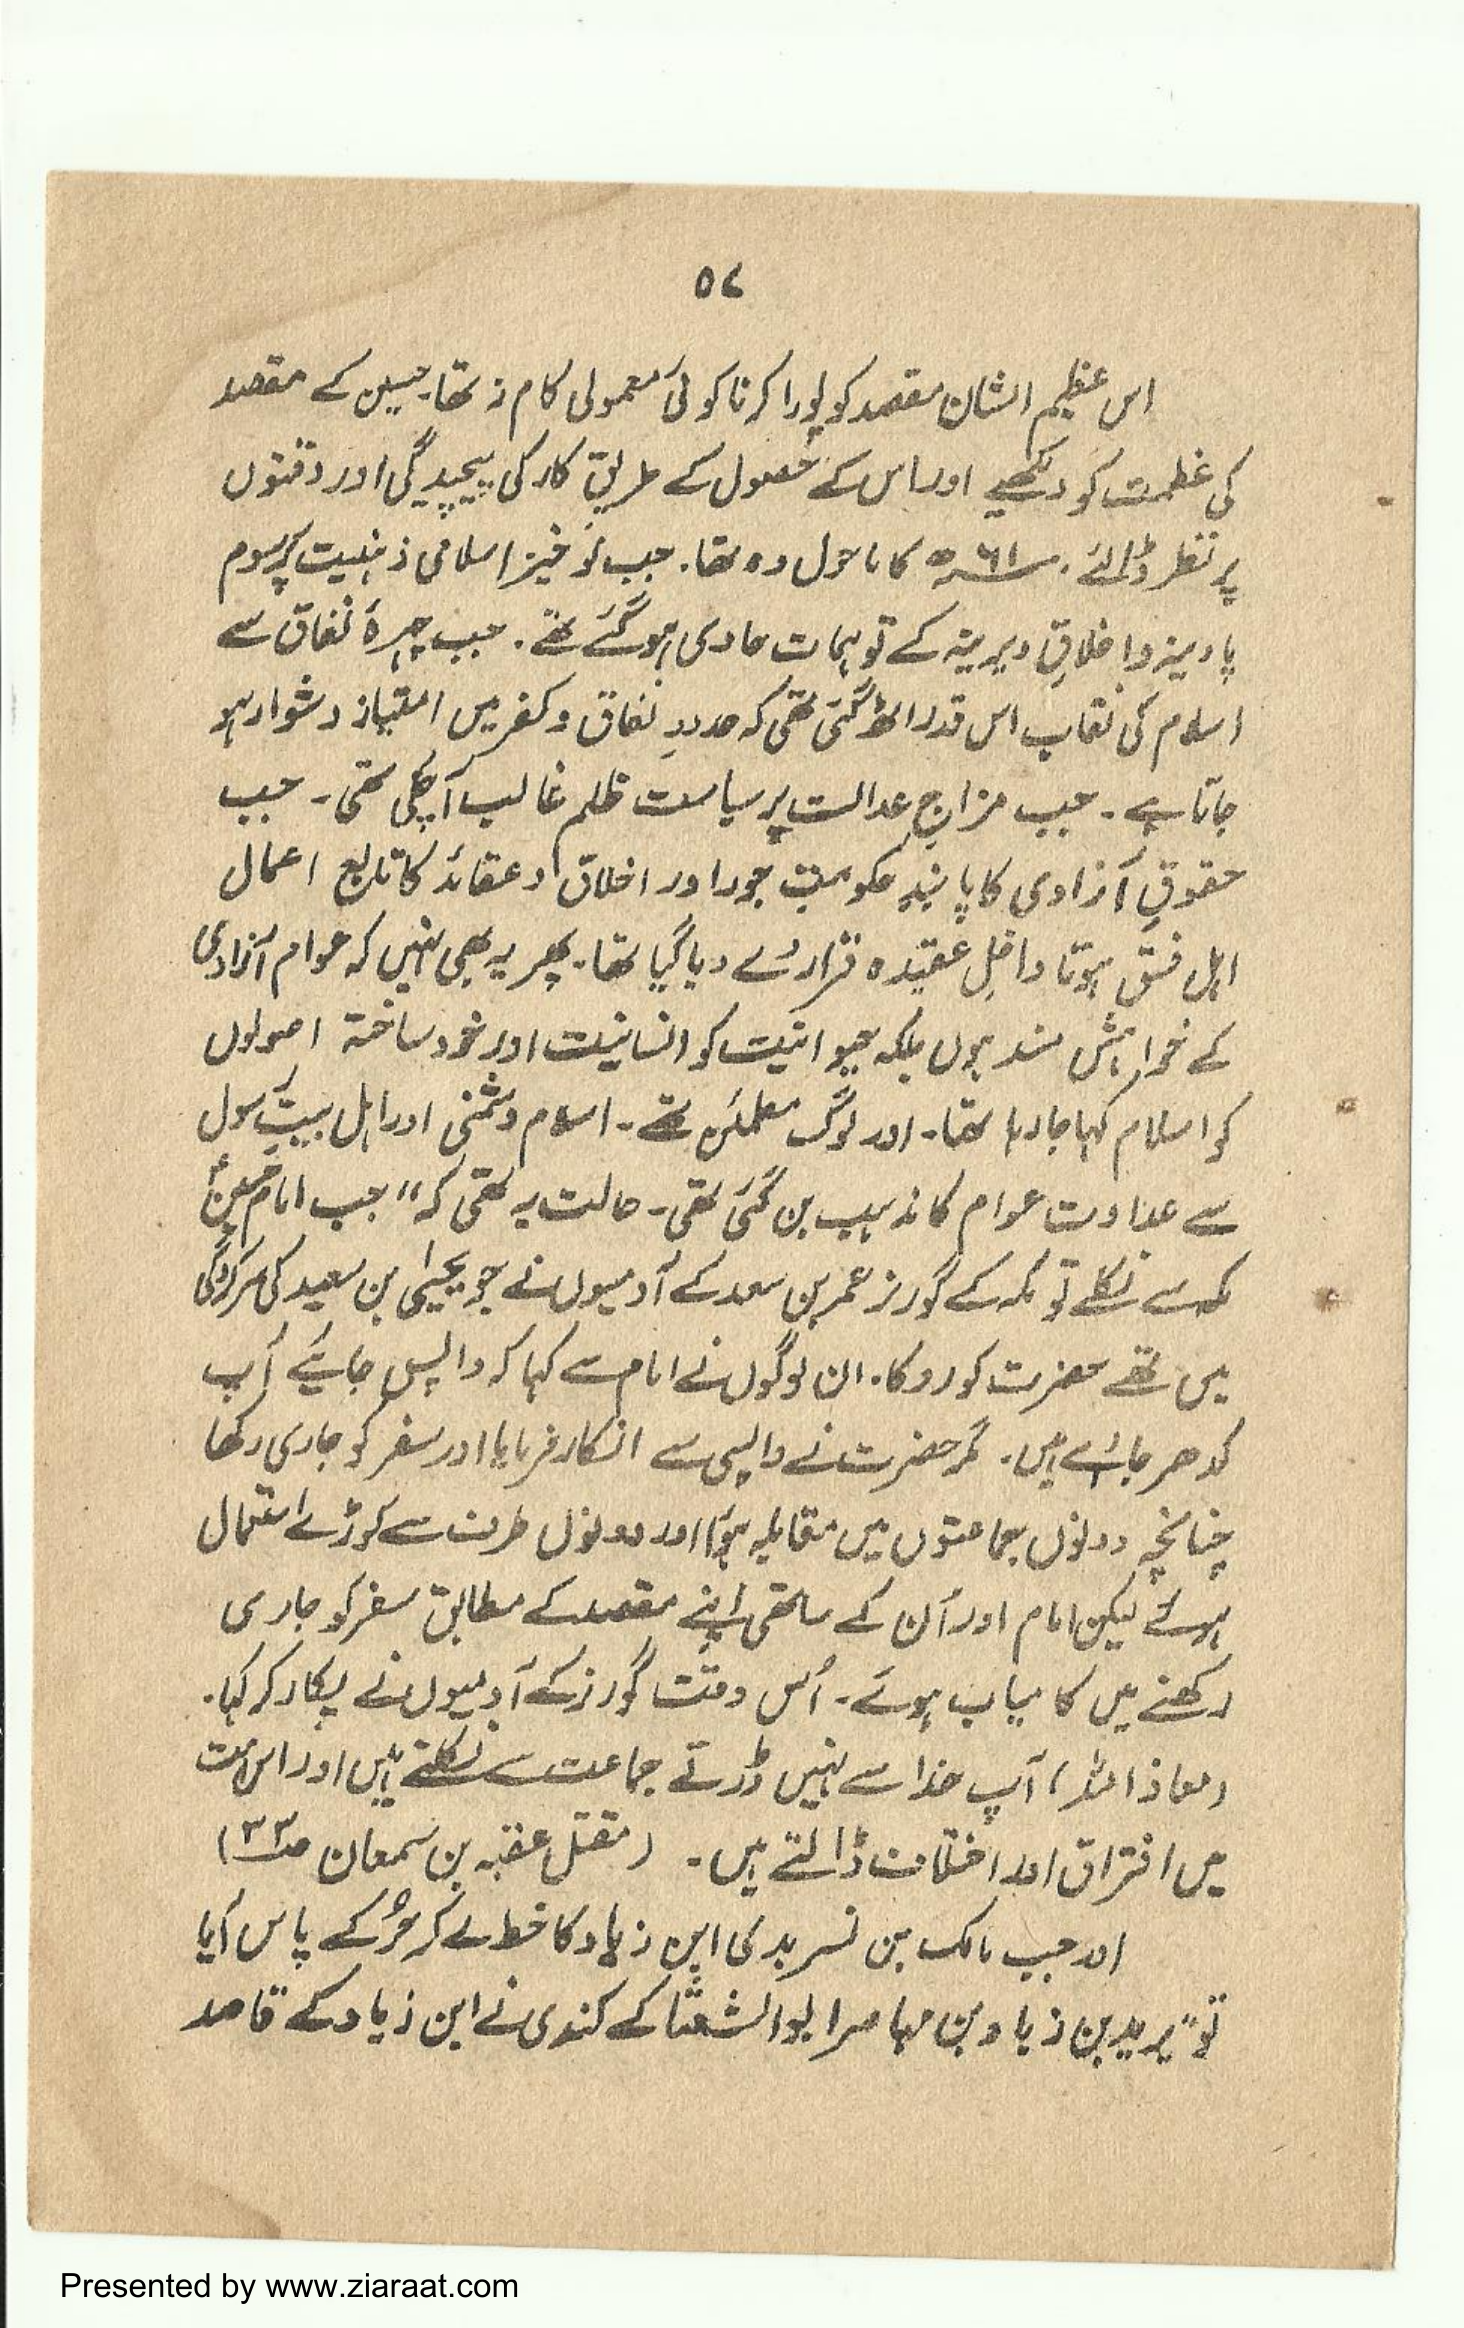 ۵۷
اس عظیم الشان مقصد کو پورا کرنا کوئی معمولی کام نہ تھا۔ حسین کے مقصد
کی عظمت کو دیکھیے اور اس کے حصول کے طریقِ کار کی پیچیدگی اور دقتوں
پر نظر ڈالئے۔ سنہ ۶۱ھ کا ماحول وہ تھا۔ جب نوخیز اسلامی ذہنیت پر رسوم
پارینہ و اخلاقِ دیرینہ کے توہمات حاوی ہو گئے تھے۔ جب چہرۂ نفاق سے
اسلام کی نقاب اس قدر اٹھ گئی تھی کہ حدودِ نفاق و کفر میں امتیاز دشوار ہو
جاتا ہے۔ جب مزاجِ عدالت پر سیاست ظلم غالب آ چکی تھی۔ جب
حقوقِ آزادی کا پابندِ حکومتِ جور اور اخلاق و عقائد کا تابع اعمال
اہل فسق ہوتا داخلِ عقیدہ قرار دے دیا گیا تھا۔ پھر یہ بھی نہیں کہ عوام آزادی
کے خواہش مند ہوں بلکہ حیوانیت کو انسانیت اور خود ساختہ اصولوں
کو اسلام کہا جا رہا تھا۔ اور لوگ مطمئن تھے۔ اسلام دشمنی اور اہل بیتِ رسول
سے عداوت عوام کا مذہب بن گئی تھی۔ حالت یہ تھی کہ "جب امام حسینؑ
مکہ سے نکلے تو مکہ کے گورنر عمر بن سعد کے آدمیوں نے جو یحییٰ بن سعید کی سرکردگی
میں تھے حضرت کو روکا۔ ان لوگوں نے امام سے کہا کہ واپس جائیے آپ
کدھر جا رہے ہیں۔ مگر حضرت نے واپسی سے انکار فرمایا اور سفر کو جاری رکھا
چنانچہ دونوں جماعتوں میں مقابلہ ہوا اور دونوں طرف سے کوڑے استعمال
ہوئے لیکن امام اور اُن کے ساتھی اپنے مقصد کے مطابق سفر کو جاری
رکھنے میں کامیاب ہوئے۔ اُس وقت گورنر کے آدمیوں نے پکار کر کہا۔
(معاذ اللہ) آپ خدا سے نہیں ڈرتے جماعت سے نکلتے ہیں اور اس امت
میں افتراق اور اختلاف ڈالتے ہیں۔ (مقتل عقبہ بن سمعان صـ۳۳)
اور جب مالک بن نسر بدی ابن زیاد کا خط لے کر حُر کے پاس آیا
تو "یزید بن زیاد بن مہاصر ابوالشعثا کے کندی نے ابن زیاد کے قاصد
Presented by www.ziaraat.com